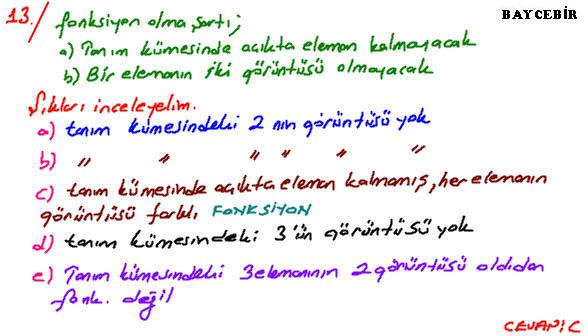 BAYCEBİR
13./ fonksiyon olma şartı;
a) Tanım kümesinde açıkta eleman kalmayacak
b) Bir elemanın iki görüntüsü olmayacak
Şıkları inceleyelim.
a) tanım kümesindeki 2 nin görüntüsü yok
b) " " " " " "
c) tanım kümesinde açıkta eleman kalmamış, her elemanın
görüntüsü farklı FONKSİYON
d) tanım kümesindeki 3'ün görüntüsü yok
e) Tanım kümesindeki 3 elemanının 2 görüntüsü oldıdan
fonk. değil
CEVAP: C